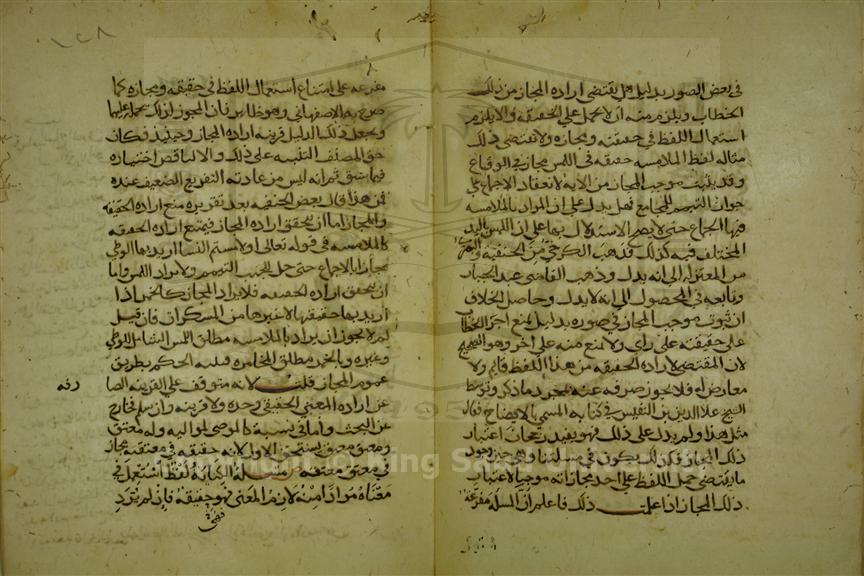 في بعض الصور بدليل هل يقتضي ارادة المجاز من ذلك
الخطاب ويلزم منه ان لا يحمل على الحقيقة والا يلزم
استعمال اللفظ في حقيقته ومجازه ولا يقتضي ذلك
مثاله لفظ الملامسة حقيقة في اللمس مجاز في الوقاع
وقد يثبت موجب المجاز من الآية لانعقاد الاجماع على
جواز التيمم للمجامع فهل يدل على ان المراد بالملامسة
فيها الجماع حتى لا يصح الاستدلال بها على ان اللمس باليد
المختلف فيه كذلك فذهب الكرخي من الحنفية والبصري
من المعتزلة الى انه يدل وذهب القاضي عبد الجبار
وتابعه في المحصول الى انه لا يدل وحاصل الخلاف
ان ثبوت موجب المجاز في صورة بدليل يمنع اجرا الخطاب
على حقيقته على راي ولا يمنع منه على اخر وهو الصحيح
لان المقتضي لارادة الحقيقة من هذا اللفظ قايم ولا
معارض له فلا يجوز صرفه عنه بمجرد ما ذكر وتوسط
الشيخ علا الدين بن النفيس في كتابه المسمى بالايضاح فقال
مثل هذا وان لم يدل على ذلك فهو يفيد رجحان اعتبار
ذلك المجاز فكذلك يكون في مسئلتنا وهي حيز وجود
ما يقتضي حمل اللفظ على احد مجازاته موجبا لاعتبار
ذلك المجاز اذا علمت ذلك فاعلم ان المسلة مفرعة
١٢٨
مفرعة على امتناع استعمال اللفظ في حقيقته ومجازه كما
صرح به الاصفهاني وهو ظاهر فان المجوز لذلك يحمله عليها
ويجعل ذلك الدليل قرينة ارادة المجاز وحينيذ فكان
حق المصنف التنبيه على ذلك والا لناقض اختياره
فيما سبق ثم انه ليس من عادته التفريع الضعيف عنده
فمن هذا قال بعض الحنفية بعد تقريره منع ارادة الحقيقة
والمجاز اما ان يتحقق ارادة المجاز فيمتنع ارادة الحقيقة
كالملامسة في قوله تعالى او لامستم النسا اريد بها الوطي
مجازا بالاجماع حتى حل للجنب التيمم ولا يراد اللمس واما
ان يتحقق ارادة الحقيقة فلا يراد المجاز كالخمر اذا
اريد بها حقيقتها لا غيرها من المسكر فان قيل
لم لا يجوز ان يراد بالملامسة مطلق اللمس الشامل للوطي
وغيره وبالخمر مطلق المخامرة فيثبت الحكم بطريق
عموم المجاز قلت لانه متوقف على القرينة الصا
رفه
عن ارادة المعنى الحقيقي وحده ولا قرينة وان سلم فخارج
عن البحث واما في مسئلة كما لو اوصى لمواليه وله معتق
ومعتق معتق يستحق الاول لانه حقيقة في معتقه مجاز
في معتق معتقه مسئلة الكناية لفظ استعمل في
معناه مرادا منه لازم المعنى فهو حقيقة فان لم يرد
فهي